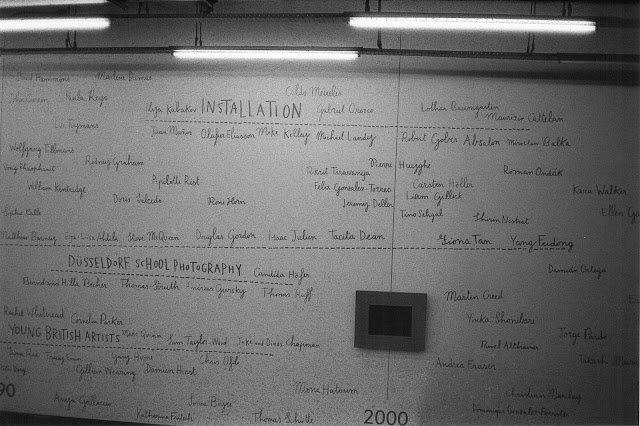 David Hammons Marlene Dumas
Cildo Meireles
John Currin Paula Rego
Ilya Kabakov INSTALLATION Gabriel Orozco Lothar Baumgarten
Maurizio Cattelan
Luc Tuymans
Juan Muñoz Olafur Eliasson Mike Kelley Michael Landy Robert Gober Absalon Miroslaw Balka
Wolfgang Tillmans
Rodney Graham Pierre Huyghe
Rirkrit Tiravanija Roman Ondák
Pipilotti Rist Carsten Höller
William Kentridge Felix Gonzalez-Torres Kara Walker
Liam Gillick
Doris Salcedo Roni Horn Jeremy Deller
Sophie Calle Tino Sehgal Shirin Neshat Ellen
Matthew Barney Eija-Liisa Ahtila Steve McQueen Douglas Gordon Isaac Julien Tacita Dean Fiona Tan Yang Fudong
DÜSSELDORF SCHOOL PHOTOGRAPHY Candida Höfer Damián Ortega
Bernd and Hilla Becher Thomas Struth Andreas Gursky Thomas Ruff
Martin Creed
Rachel Whiteread Cornelia Parker Yinka Shonibare
YOUNG BRITISH ARTISTS Marc Quinn Sam Taylor-Wood Jake and Dinos Chapman Jorge Pardo
Pawel Althamer
Tracey Emin Gary Hume Chris Ofili Takashi
Andrea Fraser
Gillian Wearing Damien Hirst
90
Mona Hatoum Christian Marclay
Anya Gallaccio Sonia Boyce
Katharina Fritsch Thomas Schütte 2000 Dominique Gonzalez-Foerster